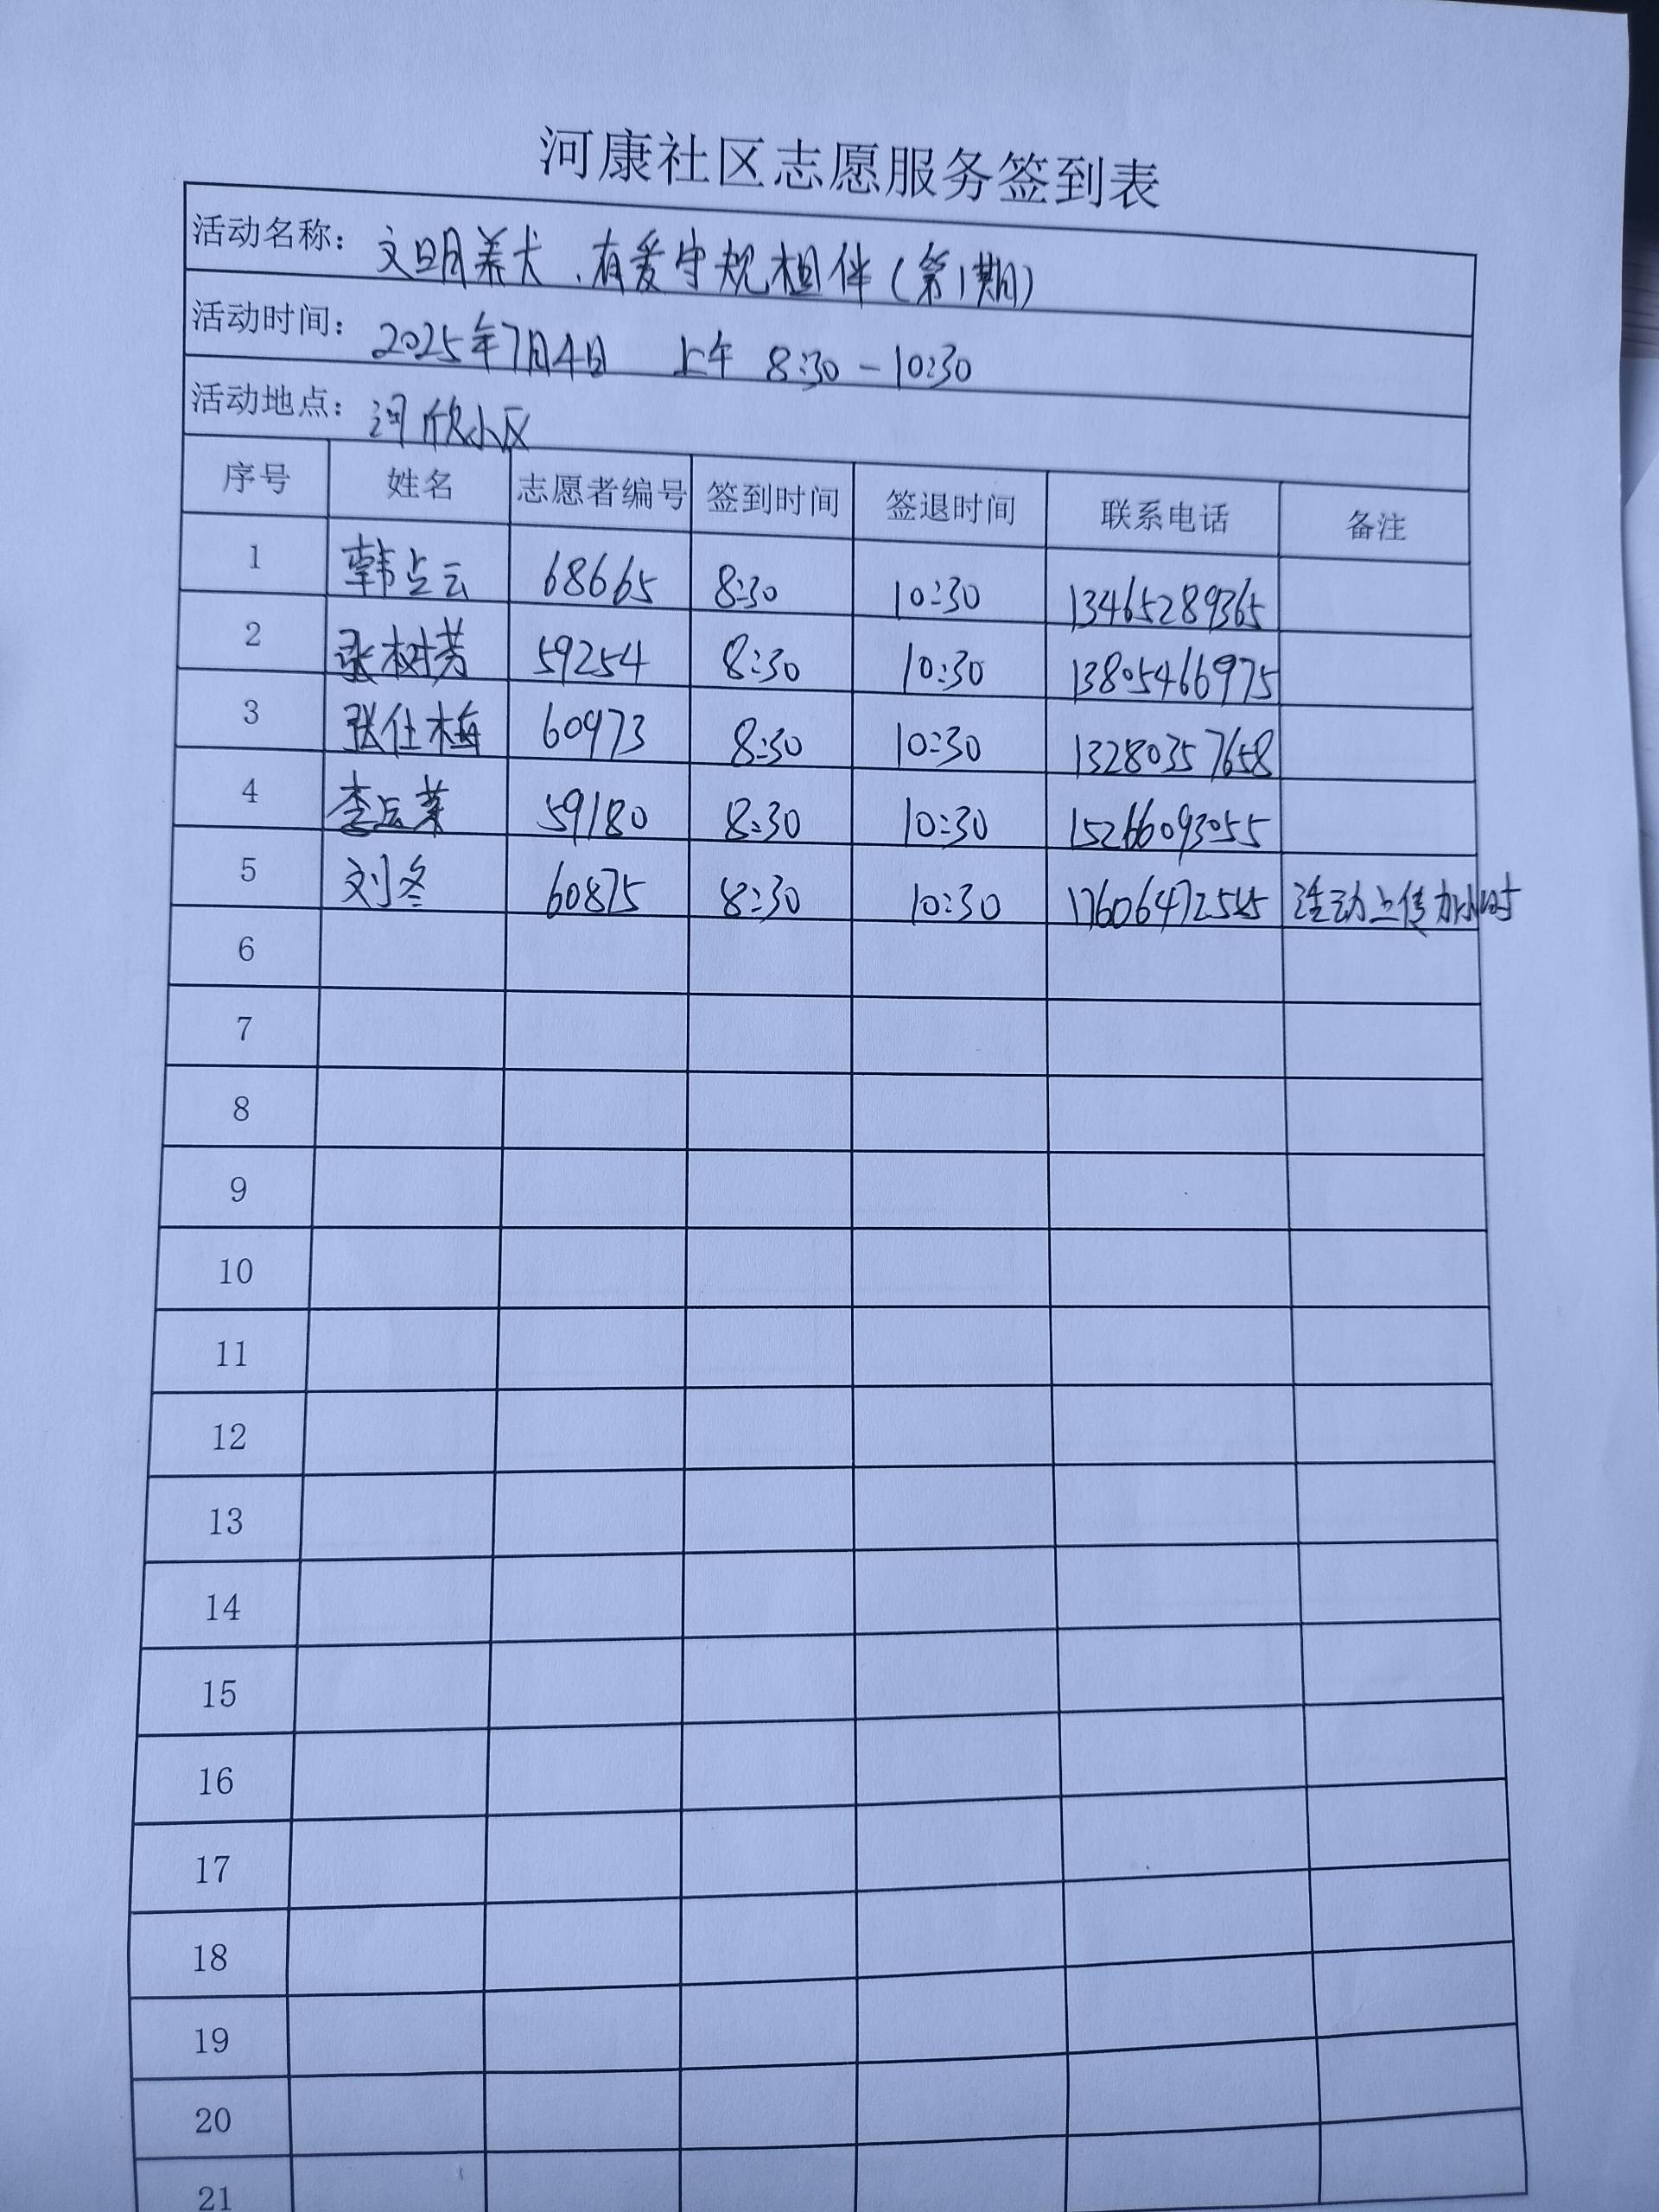 河康社区志愿服务签到表
活动名称: 文明养犬、有爱守规相伴(第1期)
活动时间: 2025年7月4日 上午 8:30-10:30
活动地点: 河欣小区
序号 姓名 志愿者编号 签到时间 签退时间 联系电话 备注
1 韩占云 68665 8:30 10:30 13465289365
2 张树芳 59254 8:30 10:30 13805466975
3 张仕梅 60973 8:30 10:30 13280357658
4 59180 8:30 10:30 15266093055
5 刘冬 60875 8:30 10:30 活动上传加小时
6
7
8
9
10
11
12
13
14
15
16
17
18
19
20
21